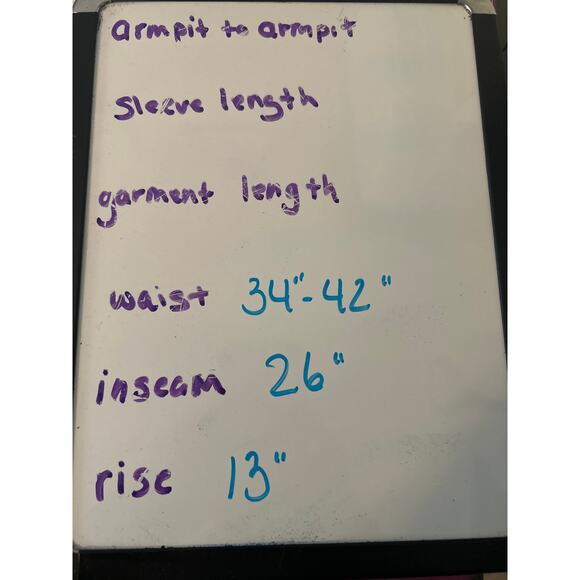 armpit to armpit
sleeve length
garment length
waist 34"-42"
inseam 26"
rise 13"